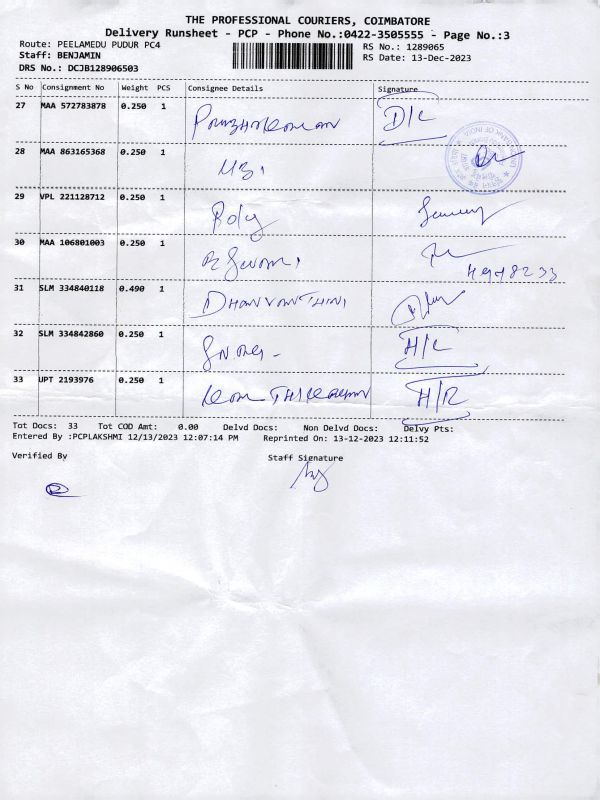 THE PROFESSIONAL COURIERS, COIMBATORE
Delivery Runsheet - PCP - Phone No.:0422-3505555 - Page No.:3
Route: PEELAMEDU PUDUR PC4 RS No.: 1289065
Staff: BENJAMIN RS Date: 13-Dec-2023
DRS No.: DCJB128906503
S No Consignment No Weight PCS Consignee Details Signature
27 MAA 572783878 0.250 1 D/C
28 MAA 863165368 0.250 1
29 VPL 221128712 0.250 1
30 MAA 106801003 0.250 1
31 SLM 334840118 0.490 1
32 SLM 334842860 0.250 1 H/C
33 UPT 2193976 0.250 1 H/R
Tot Docs: 33 Tot COD Amt: 0.00 Delvd Docs: Non Delvd Docs: Delvy Pts:
Entered By :PCPLAKSHMI 12/13/2023 12:07:14 PM Reprinted On: 13-12-2023 12:11:52
Verified By Staff Signature